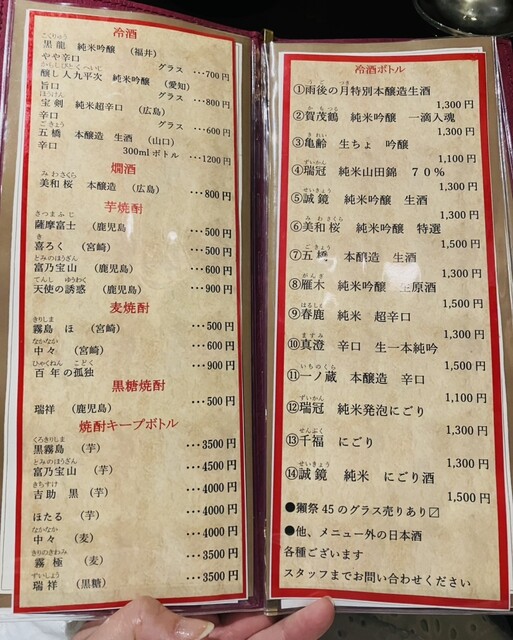 冷酒
こくりゅう
黒龍 純米吟醸 (福井)
やや辛口 グラス ・・・700円
かもしびとくへいじ
醸し人九平次 純米吟醸 (愛知)
旨口 グラス ・・・800円
ほうけん
宝剣 純米超辛口 (広島)
辛口 グラス ・・・600円
ごきょう
五橋 本醸造 生酒 (山口)
辛口 300mlボトル ・・・1200円
燗酒
みわさくら
美和桜 本醸造 (広島) ・・・800円
芋焼酎
さつまふじ
薩摩富士 (鹿児島 ・・・500円
き
喜ろく (宮崎) ・・・500円
とみのほうざん
富乃宝山 (鹿児島) ・・・600円
てんし ゆうわく
天使の誘惑 (鹿児島) ・・・900円
麦焼酎
きりしま
霧島 ほ (宮崎) ・・・500円
なかなか
中々 (宮崎) ・・・600円
ひゃくねん こどく
百年の孤独 ・・・900円
黒糖焼酎
瑞祥 (鹿児島) ・・・500円
焼酎キープボトル
くろきりしま
黒霧島 (芋) ・・・3500円
とみのほうざん
富乃宝山 (芋) ・・・4500円
きちすけ
吉助 黒 (芋) ・・・4000円
ほたる (芋) ・・・4000円
なかなか
中々 (麦) ・・・4000円
きりのきわみ
霧極 (麦) ・・・3500円
ずいしょう
瑞祥 (黒糖) ・・・3500円
冷酒ボトル
うご つき
①雨後の月特別本醸造生酒
1,300円
かもつる
②賀茂鶴 純米吟醸 一滴入魂
1,300円
きれい
③亀齢 生ちょ 吟醸
1,100円
ずいかん
④瑞冠 純米山田錦 70%
1,300円
せいきょう
⑤誠鏡 純米吟醸 生酒
1,300円
みわさくら
⑥美和桜 純米吟醸 特選
1,500円
ごきょう
⑦五橋 本醸造 生酒
1,300円
がんぎ
⑧雁木 純米吟醸 生原酒
1,500円
はるしか
⑨春鹿 純米 超辛口
1,300円
ますみ
⑩真澄 辛口 生一本純吟
1,500円
いちのくら
⑪一ノ蔵 本醸造 辛口
1,100円
ずいかん
⑫瑞冠 純米発泡にごり
1,300円
せんぷく
⑬千福 にごり
1,300円
せいきょう
⑭誠鏡 純米 にごり酒
1,500円
●獺祭45のグラス売りあり〼
●他、メニュー外の日本酒
各種ございます
スタッフまでお問い合わせください